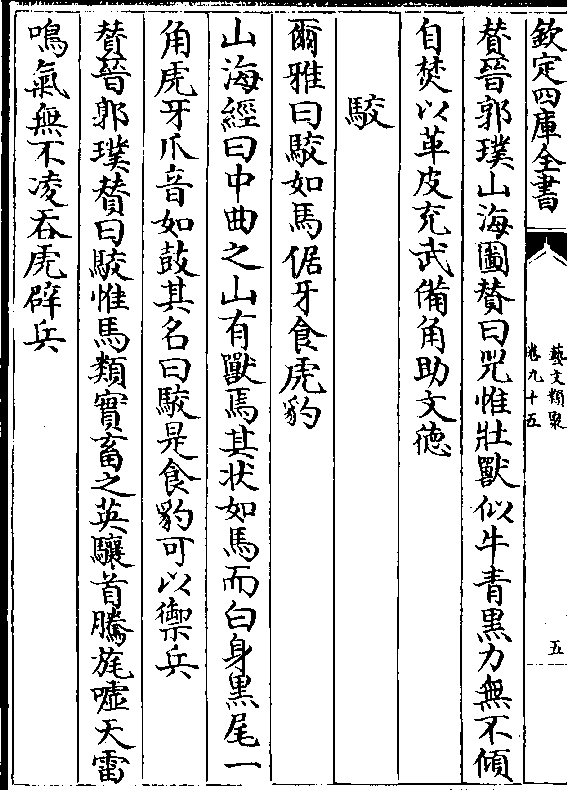 欽定四庫全書
藝文類聚
卷九十五
五
賛晉郭璞山海圖賛曰兕惟壯獸似牛青黒力無不傾
自焚以革皮充武備角助文徳
駮
爾雅曰駮如馬倨牙食虎豹
山海經曰中曲之山有獸焉其状如馬而白身黒尾一
角虎牙爪音如鼓其名曰駮是食豹可以禦兵
賛晉郭璞賛曰駮惟馬類實畜之英驤首騰旄嘘天雷
鳴氣無不凌吞虎辟兵